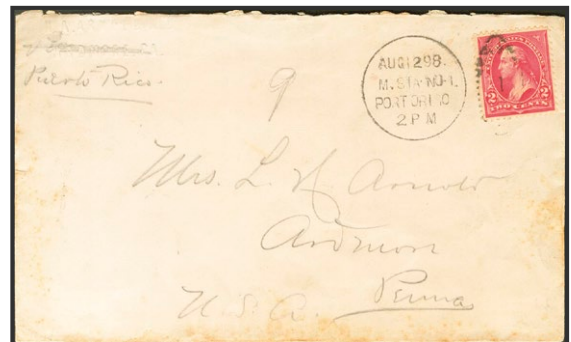 Puerto Rico.
9
AUG 12 98.
M. STA. NO. 1.
PORTORI O
2 P M
2 2
TWO CENTS
Mrs. L. H. Arnold
Ardmore
Penna
U. S. A.